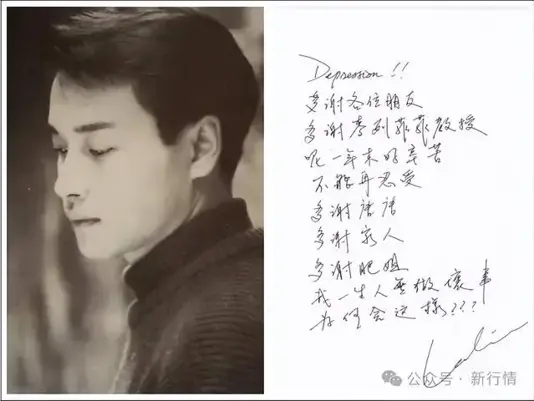 Depression!!
多谢各位朋友
多谢麥列菲菲教授
呢一年来好辛苦
不能再忍受
多谢唐唐
多谢家人
多谢肥姐
我一生人無做壞事
为何会这樣???
Leslie
公众号·新行情